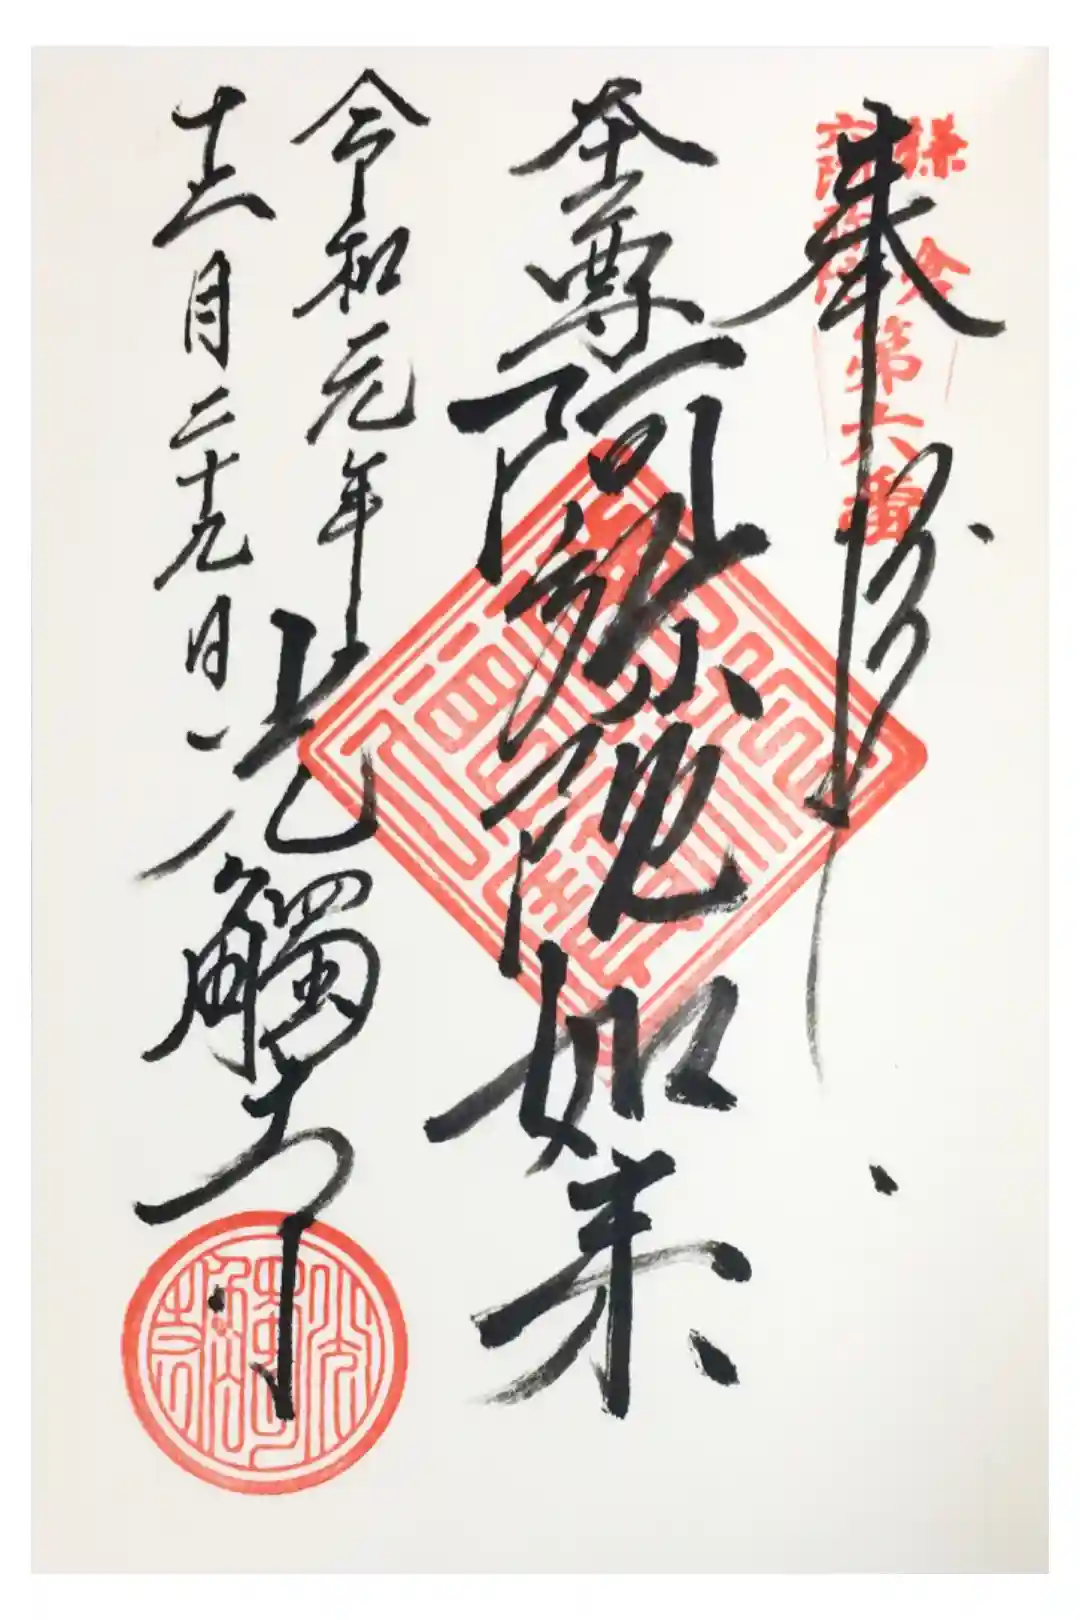 奉拝
鎌倉
六阿弥陀
第六番
本尊阿弥陀如来
令和元年
十二月二十九日
光觸寺